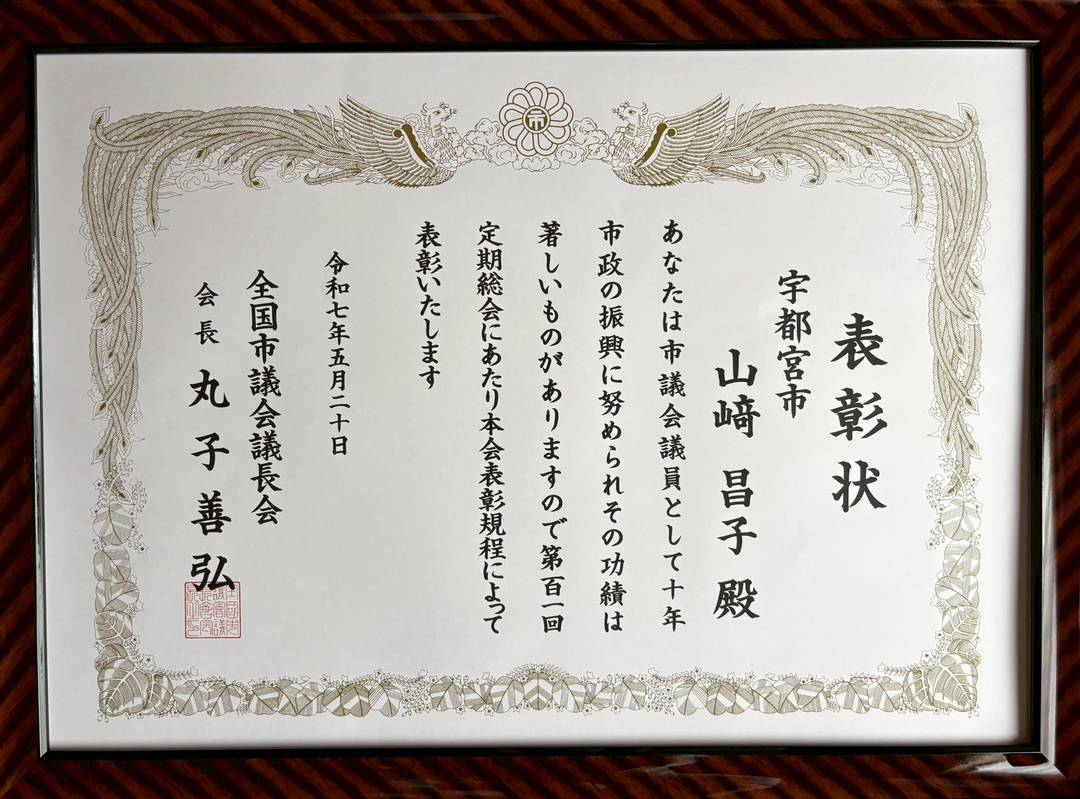 表彰状
宇都宮市
山﨑昌子殿
あなたは市議会議員として十年
市政の振興に努められその功績は
著しいものがありますので第百一回
定期総会にあたり本会表彰規程によって
表彰いたします
令和七年五月二十日
全国市議会議長会
会長 丸子善弘